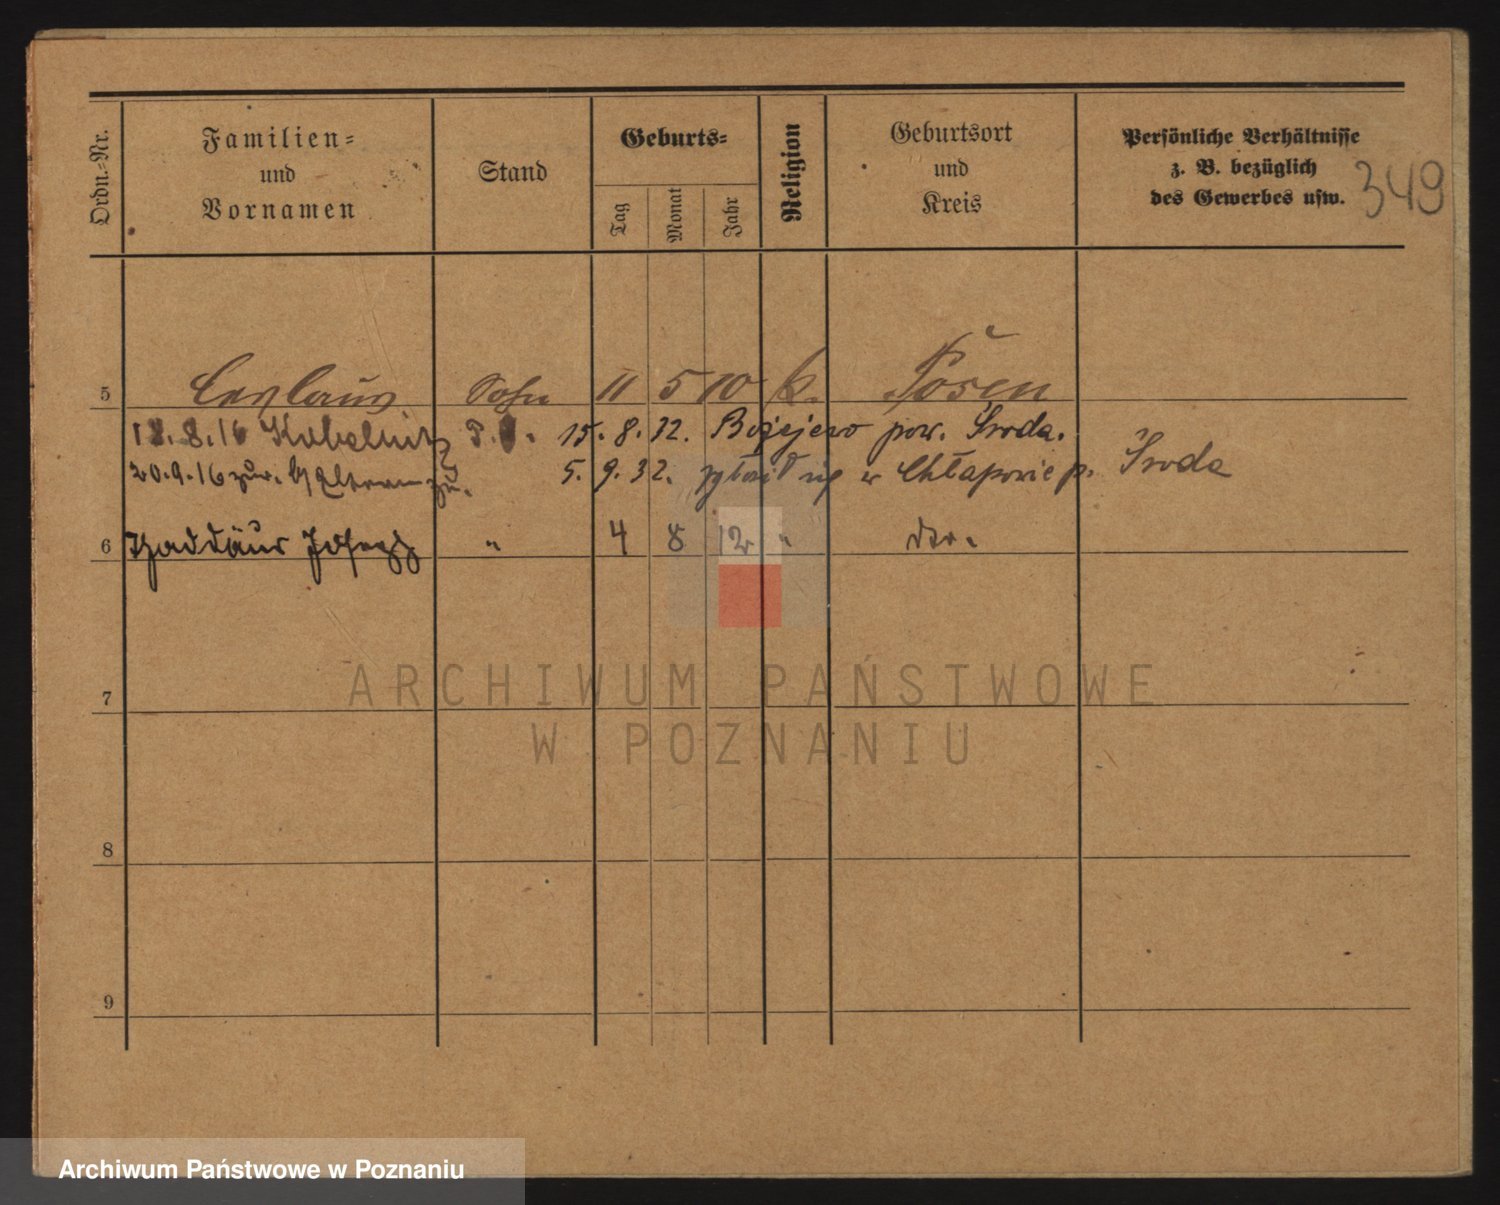 Ordn.-Nr.
Familien-
und
Vornamen
Stand
Geburts-
Tag
Monat
Jahr
Religion
Geburtsort
und
Kreis
Persönliche Verhältnisse
z. B. bezüglich
des Gewerbes usw.
349
5 Ceslaus Sohn 11 5 10 k. Posen
18.8.16 Kobelnitz 15.8.32. pow. Środa.
20.9.16 zur. 5.9.32. w Chłapowie p. Środa
6 Thaddäus Joseph " 4 8 12 " dto.
7
8
9
ARCHIWUM PAŃSTWOWE
W POZNANIU
Archiwum Państwowe w Poznaniu